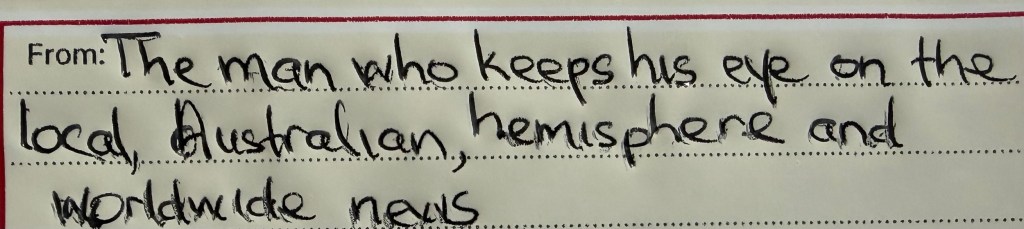 From: The man who keeps his eye on the
local, Australian, hemisphere and
worldwide news